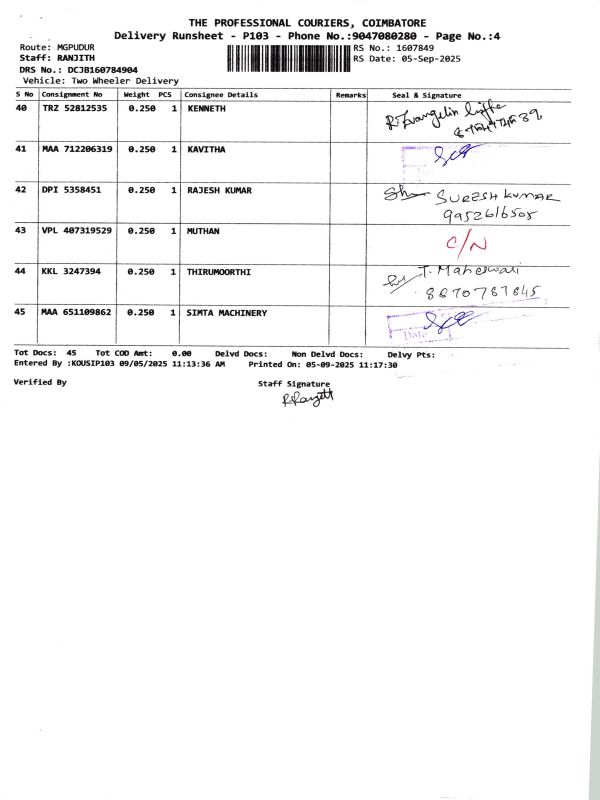 THE PROFESSIONAL COURIERS, COIMBATORE
Delivery Runsheet - P103 - Phone No.:9047080280 - Page No.:4
Route: MGPUDUR RS No.: 1607849
Staff: RANJITH RS Date: 05-Sep-2025
DRS No.: DCJB160784904
Vehicle: Two Wheeler Delivery
S No Consignment No Weight PCS Consignee Details Remarks Seal & Signature
40 TRZ 52812535 0.250 1 KENNETH
41 MAA 712206319 0.250 1 KAVITHA
42 DPI 5358451 0.250 1 RAJESH KUMAR SURESH KUMAR
9952616505
43 VPL 407319529 0.250 1 MUTHAN C/N
44 KKL 3247394 0.250 1 THIRUMOORTHI T. Maheswari
8870787845
45 MAA 651109862 0.250 1 SIMTA MACHINERY
Date
Tot Docs: 45 Tot COD Amt: 0.00 Delvd Docs: Non Delvd Docs: Delvy Pts:
Entered By :KOUSIP103 09/05/2025 11:13:36 AM Printed On: 05-09-2025 11:17:30
Verified By Staff Signature